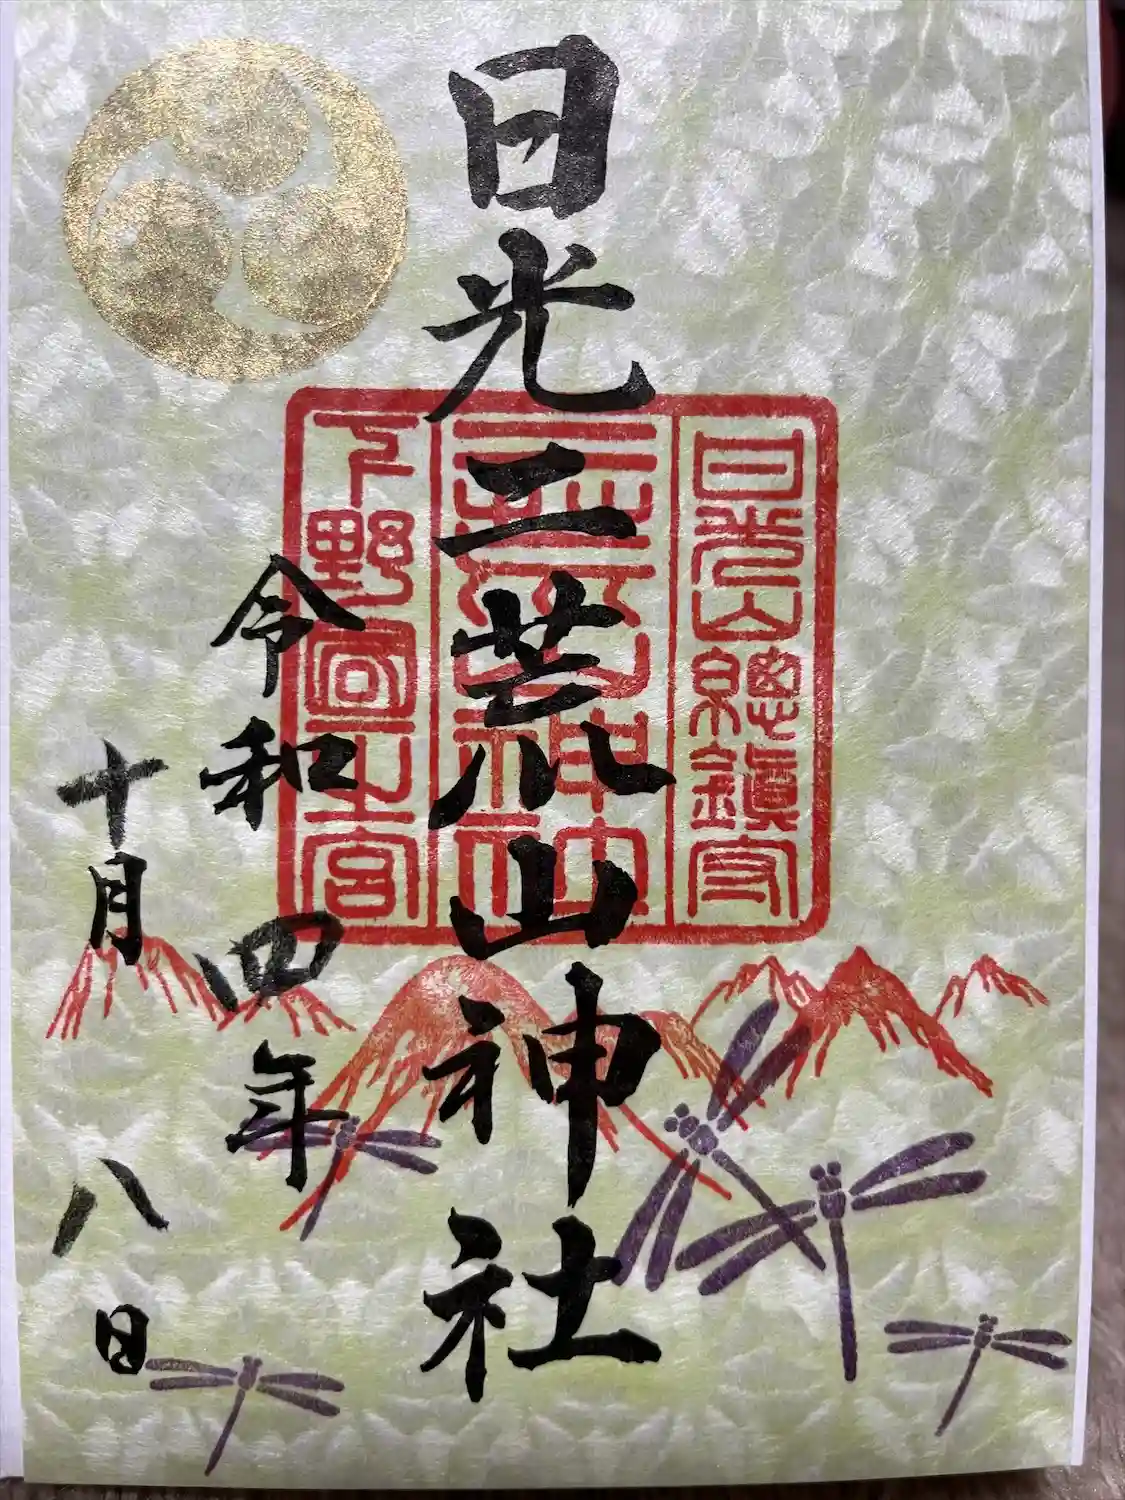 日光二荒山神社
日光山總鎮守
二荒山神社
下野國一之宮
令和四年
十月八日